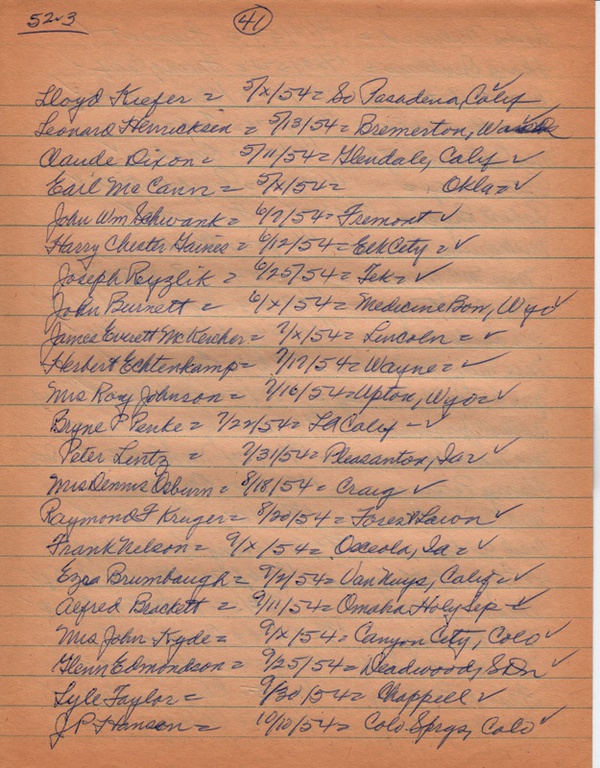 52-3
41
Lloyd Kiefer = 5/x/54 = So Pasadena, Calif ✓
Leonard Henricksen = 5/13/54 = Bremerton,
Claude Dixon = 5/11/54 = Glendale, Calif ✓
Earl McCann = 5/x/54 = Okla = ✓
John Wm Schwank = 6/7/54 = Fremont ✓
Harry Chester Gaines = 6/12/54 = Elk City = ✓
Joseph 6/25/54 = Tek = ✓
John Burnett = 6/x/54 = Medicine Bow, Wyo ✓
James Everett McKercher = 7/x/54 = Lincoln = ✓
Herbert Echtenkamp = 7/17/54 = Wayne = ✓
Mrs Roy Johnson = 7/16/54 = Upton, Wyo = ✓
Bryne P Penke = 7/22/54 = LA Calif - ✓
Peter Lentz = 7/31/54 = Pleasanton, Ia = ✓
Mrs Dennis Osburn = 8/18/54 = Craig ✓
Raymond F Kruger = 8/20/54 = Forest Lawn ✓
Frank Nelson = 9/x/54 = Osceola, Ia = ✓
Ezra Brumbaugh = 9/2/54 = Van Nuys, Calif = ✓
Alfred Brackett = 9/11/54 = Omaha Holy Sep ✓
Mrs John Kyde = 9/x/54 = Canyon City, Colo ✓
Glenn Edmondson = 9/25/54 = Deadwood, S Dn ✓
Lyle Taylor = 9/30/54 = Chappell ✓
J.P. Hansen = 10/10/54 = Colo Sprgs, Colo ✓